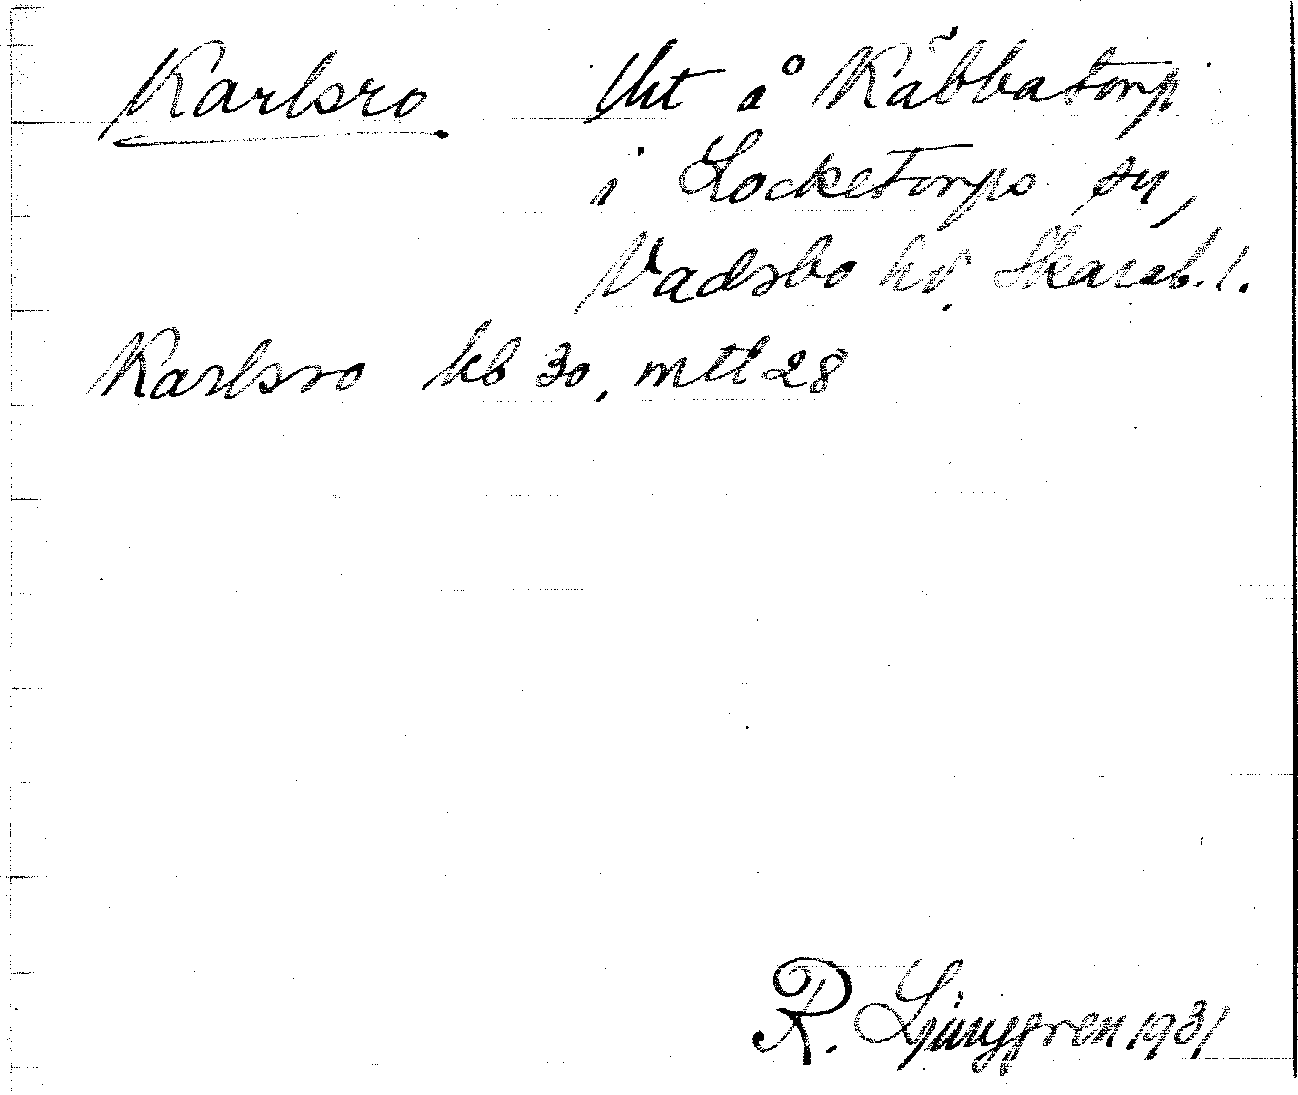 Karlsro lht å Käbbatorp
i Locketorps sn,
Vadsbo hd. Skarab. l.
Karlsro kb 30, mtl 28
R. Ljunggren 1931